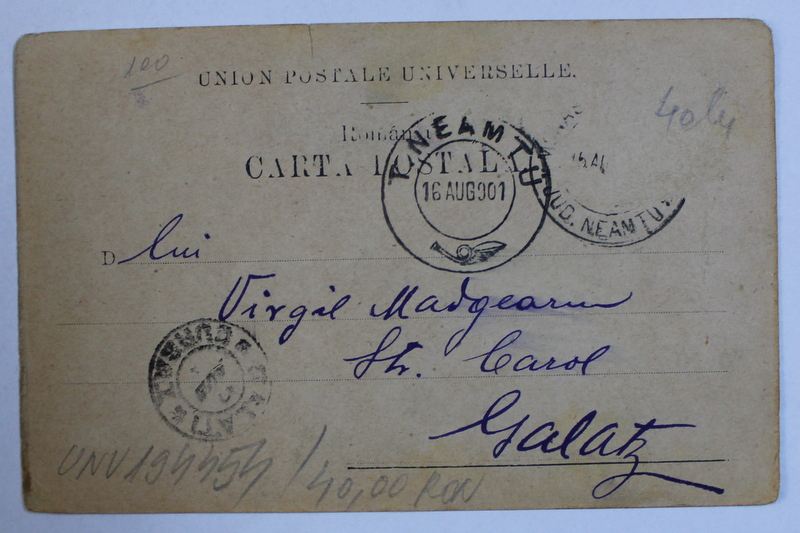 100
UNION POSTALE UNIVERSELLE.
40 lei
România
CARTA POSTALA
T. NEAMTU
16 AUG 901
JUD. NEAMTU
D lui
Virgil Madgearu
Str. Carol
Galatz
GALATI
UNV194454 / 40,00 RON